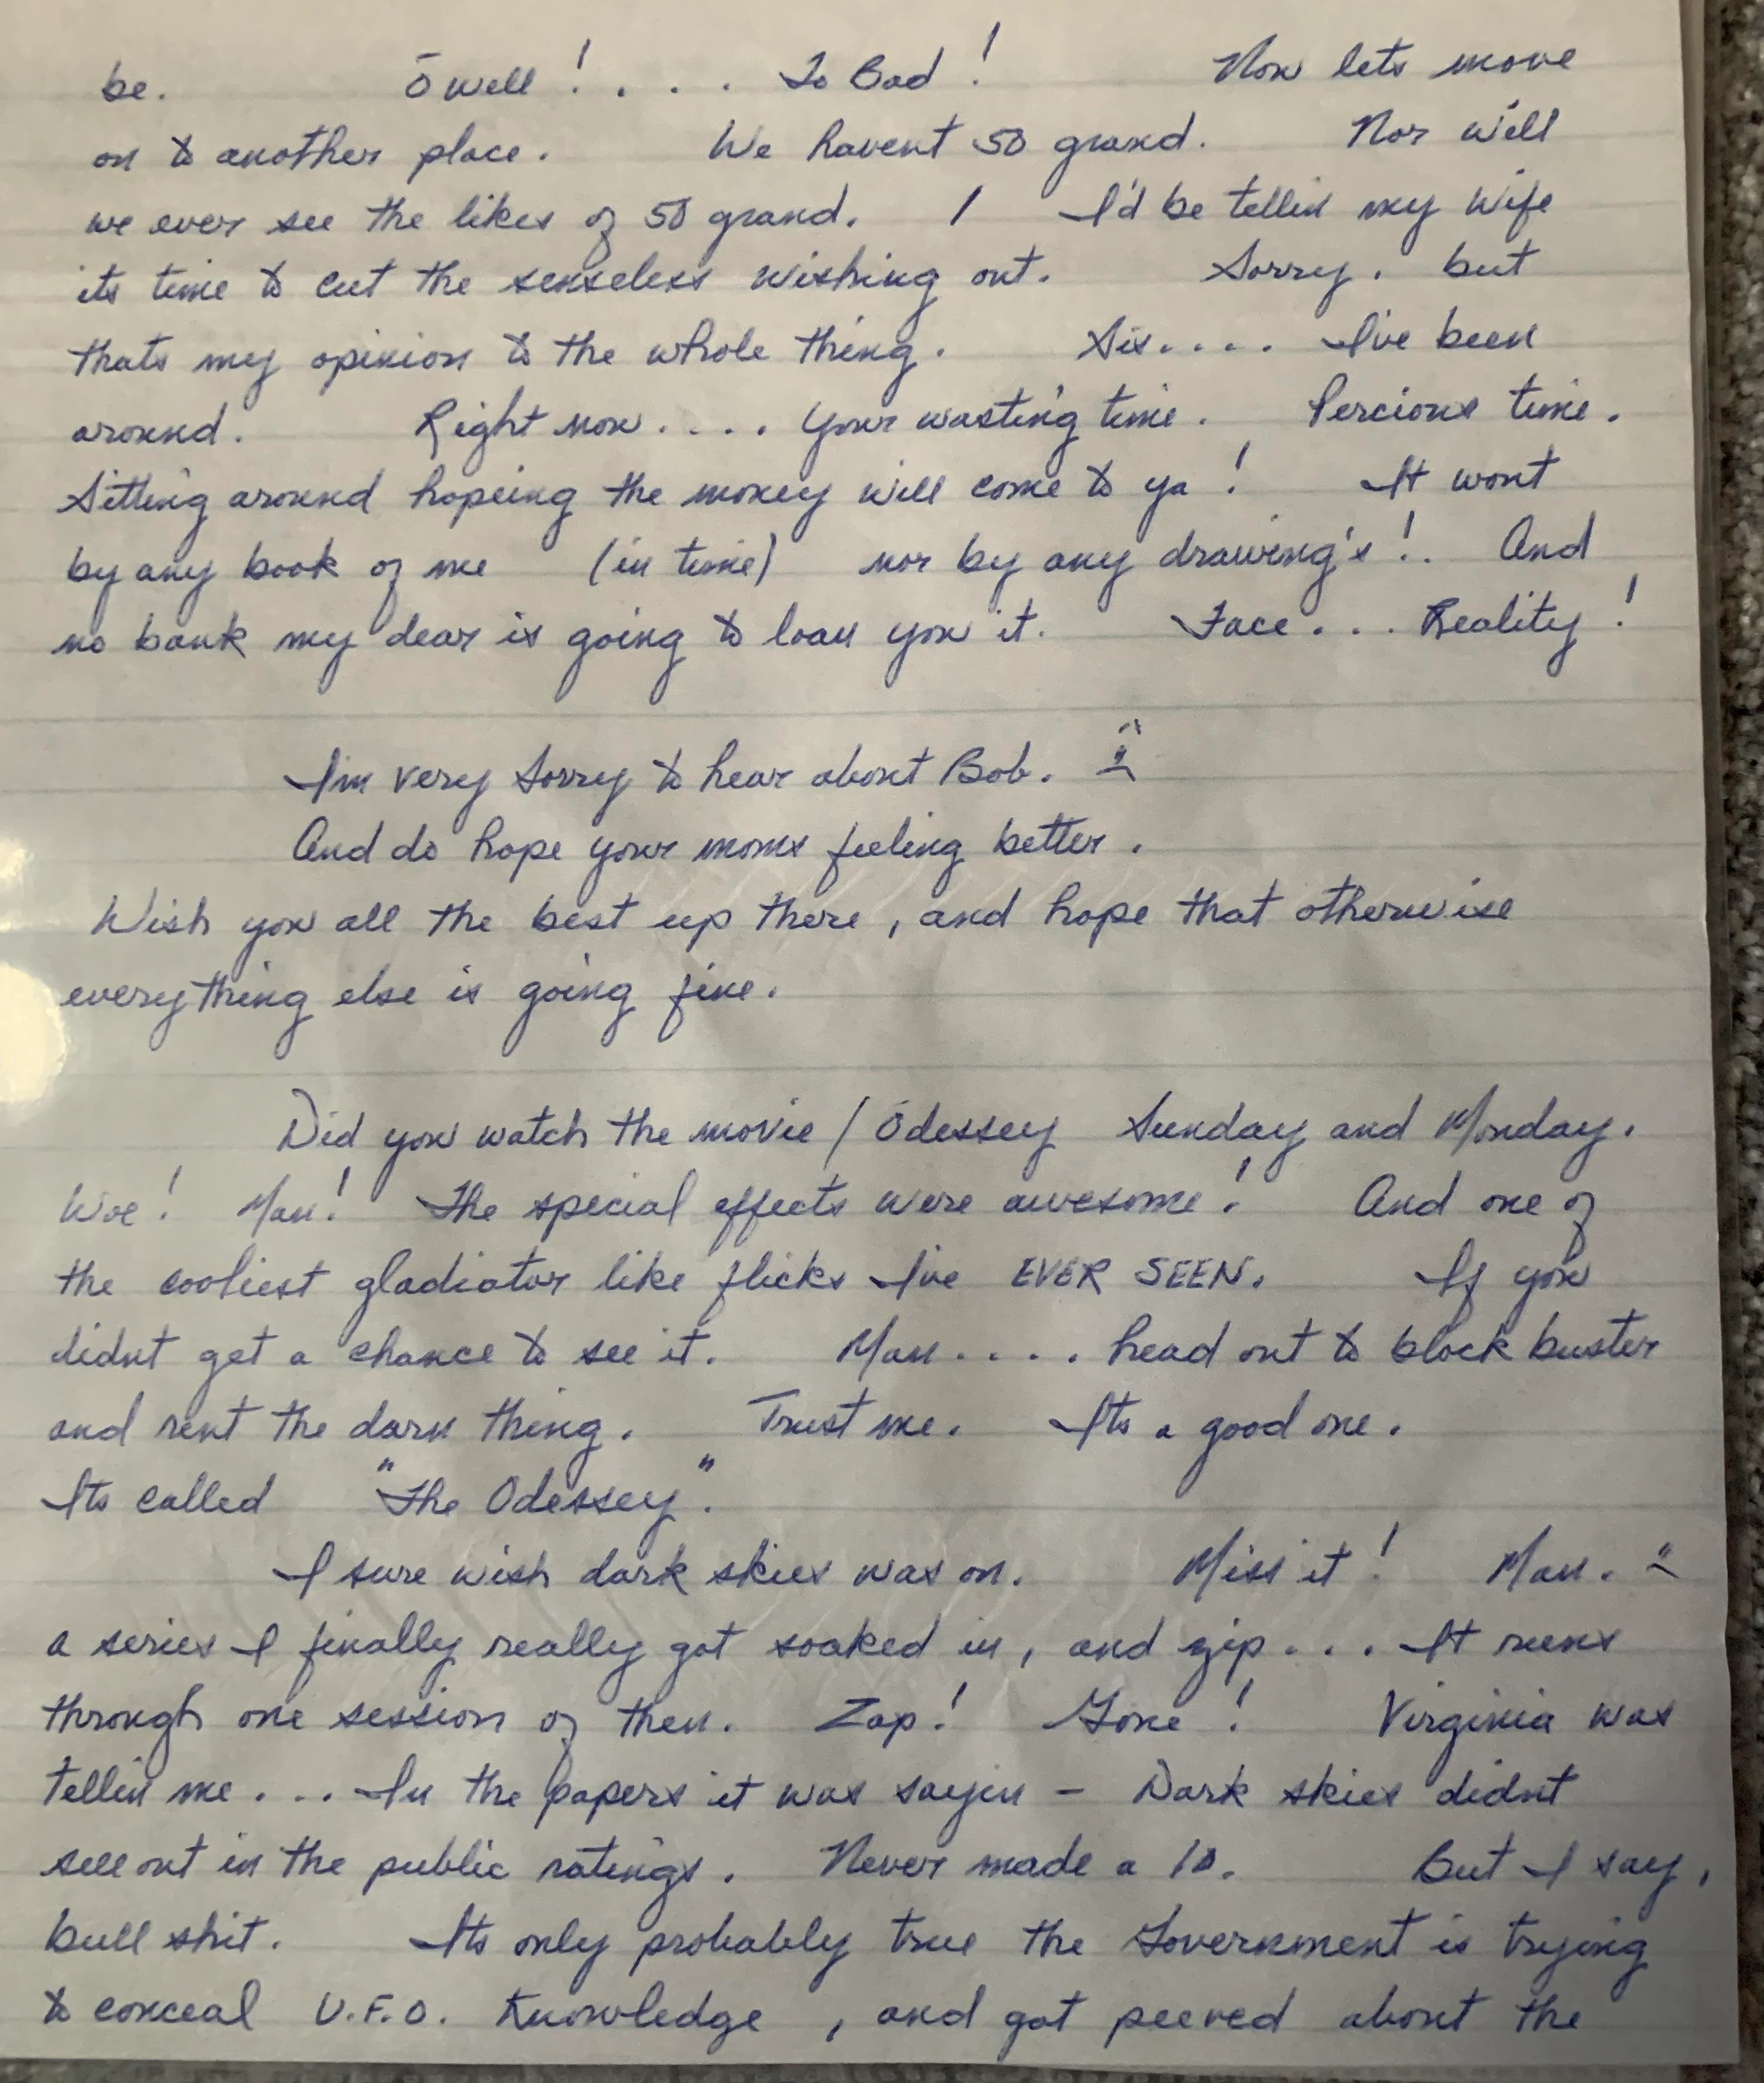 be. O well! . . . . To Bad! Now lets move
on to another place. We havent 50 grand. Nor will
we ever see the likes of 50 grand. I I'd be tellin my wife
its time to cut the senseless wishing out. Sorry. but
thats my opinion to the whole thing. Sis.... I've been
around. Right now.... your wasting time. Percious time.
Sitting around hopeing the money will come to ya! It wont
by any book of me (in time) nor by any drawing's!. And
no bank my dear is going to loan you it. Face... Reality!
I'm very sorry to hear about Bob.
And do hope your moms feeling better.
Wish you all the best up there, and hope that otherwise
everything else is going fine.
Did you watch the movie / Odessey Sunday and Monday.
Woe! Man! The special effects were awesome! And one of
the cooliest gladiator like flicks I've EVER SEEN. If you
didnt get a chance to see it. Man.... head out to block buster
and rent the darn thing. Trust me. Its a good one.
Its called "The Odessey".
I sure wish dark skies was on. Miss it! Man.
a series I finally really got soaked in, and zip... It runs
through one session of then. Zap! Gone! Virginia was
tellin me... In the papers it was sayin - Dark skies didnt
sell out in the public ratings. Never made a 10. But I say,
bull shit. Its only probably true the Government is trying
to conceal U.F.O. Knowledge, and got peeved about the